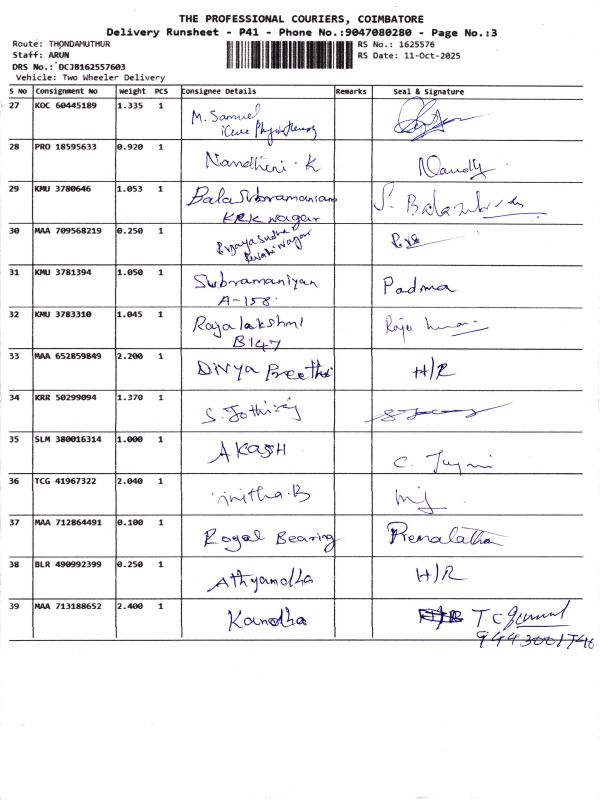 THE PROFESSIONAL COURIERS, COIMBATORE
Delivery Runsheet - P41 - Phone No.:9047080280 - Page No.:3
Route: THONDAMUTHUR RS No.: 1625576
Staff: ARUN RS Date: 11-Oct-2025
DRS No.: DCJB162557603
Vehicle: Two Wheeler Delivery
S No Consignment No Weight PCS Consignee Details Remarks Seal & Signature
27 KOC 60445189 1.335 1 M. Samuel
28 PRO 18595633 0.920 1 Nandhini. K Nandy
29 KMU 3780646 1.053 1 Balasubramaniam S. Bala
KRK nagar
30 MAA 709568219 0.250 1
nagar
31 KMU 3781394 1.050 1 Subramaniyan Padma
A-158.
32 KMU 3783310 1.045 1 Rajalakshmi Raja
B147
33 MAA 652859849 2.200 1 Divya Preethi H/R
34 KRR 50299094 1.370 1 S. Jothiraj
35 SLM 380016314 1.000 1 AKASH C.
36 TCG 41967322 2.040 1 initha.B
37 MAA 712864491 0.100 1 Royal Bearing Premalatha
38 BLR 490992399 0.250 1 H/R
39 MAA 713188652 2.400 1 Kandha H/R T C